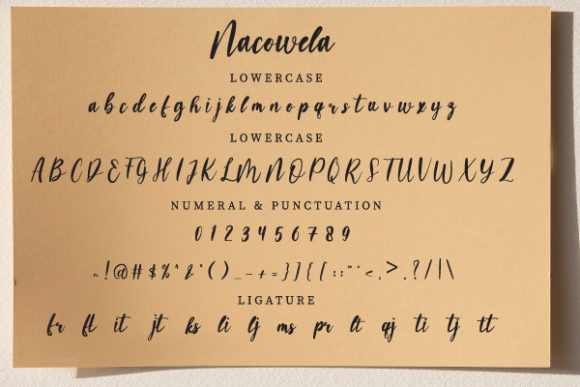 Nacowela
LOWERCASE
a b c d e f g h i j k l m n o p q r s t u v w x y z
LOWERCASE
A B C D E F G H I J K L M N O P Q R S T U V W X Y Z
NUMERAL & PUNCTUATION
0 1 2 3 4 5 6 7 8 9
~ ! @ # $ % ^ & * ( ) _ - + = } ] { [ : ; " ' < , > . ? / | \
LIGATURE
fr fl it jt ks li lj ms pr lt qj ti tj tt